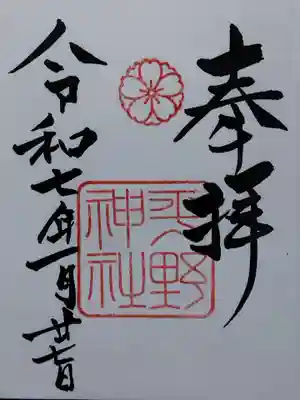 奉拝
平野
神社
令和七年一月廿七日